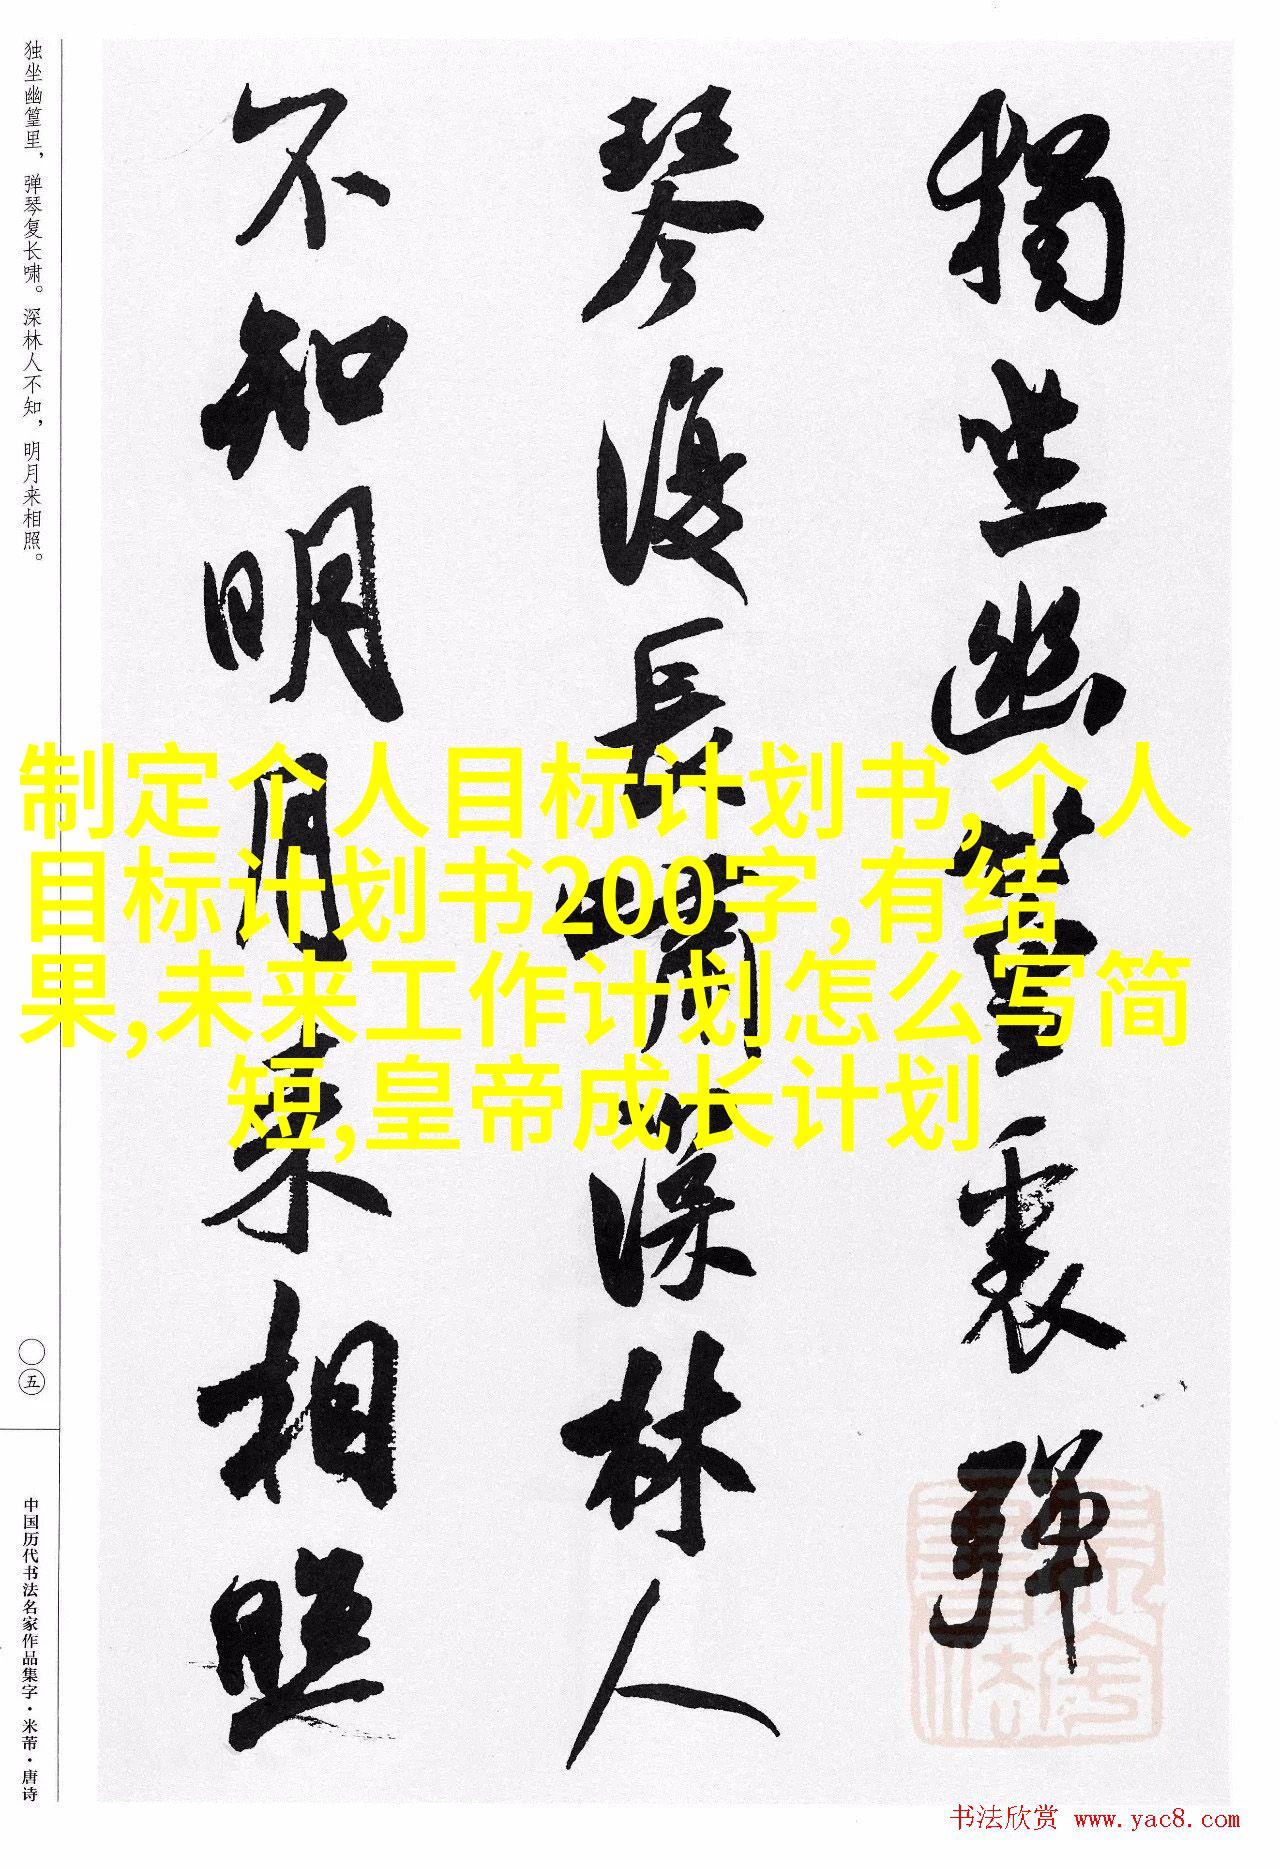 獨坐幽篁裏彈
琴復長嘯深林人
不知明月来相照
独坐幽篁里，弹琴复长啸。深林人不知，明月来相照。
〇五
中国历代书法名家作品集字·米芾·唐诗
制定个人目标计划书,个人
目标计划书200字,有结
果,未来工作计划怎么写简
短,皇帝成长计划
书法欣赏 www.yac8.com